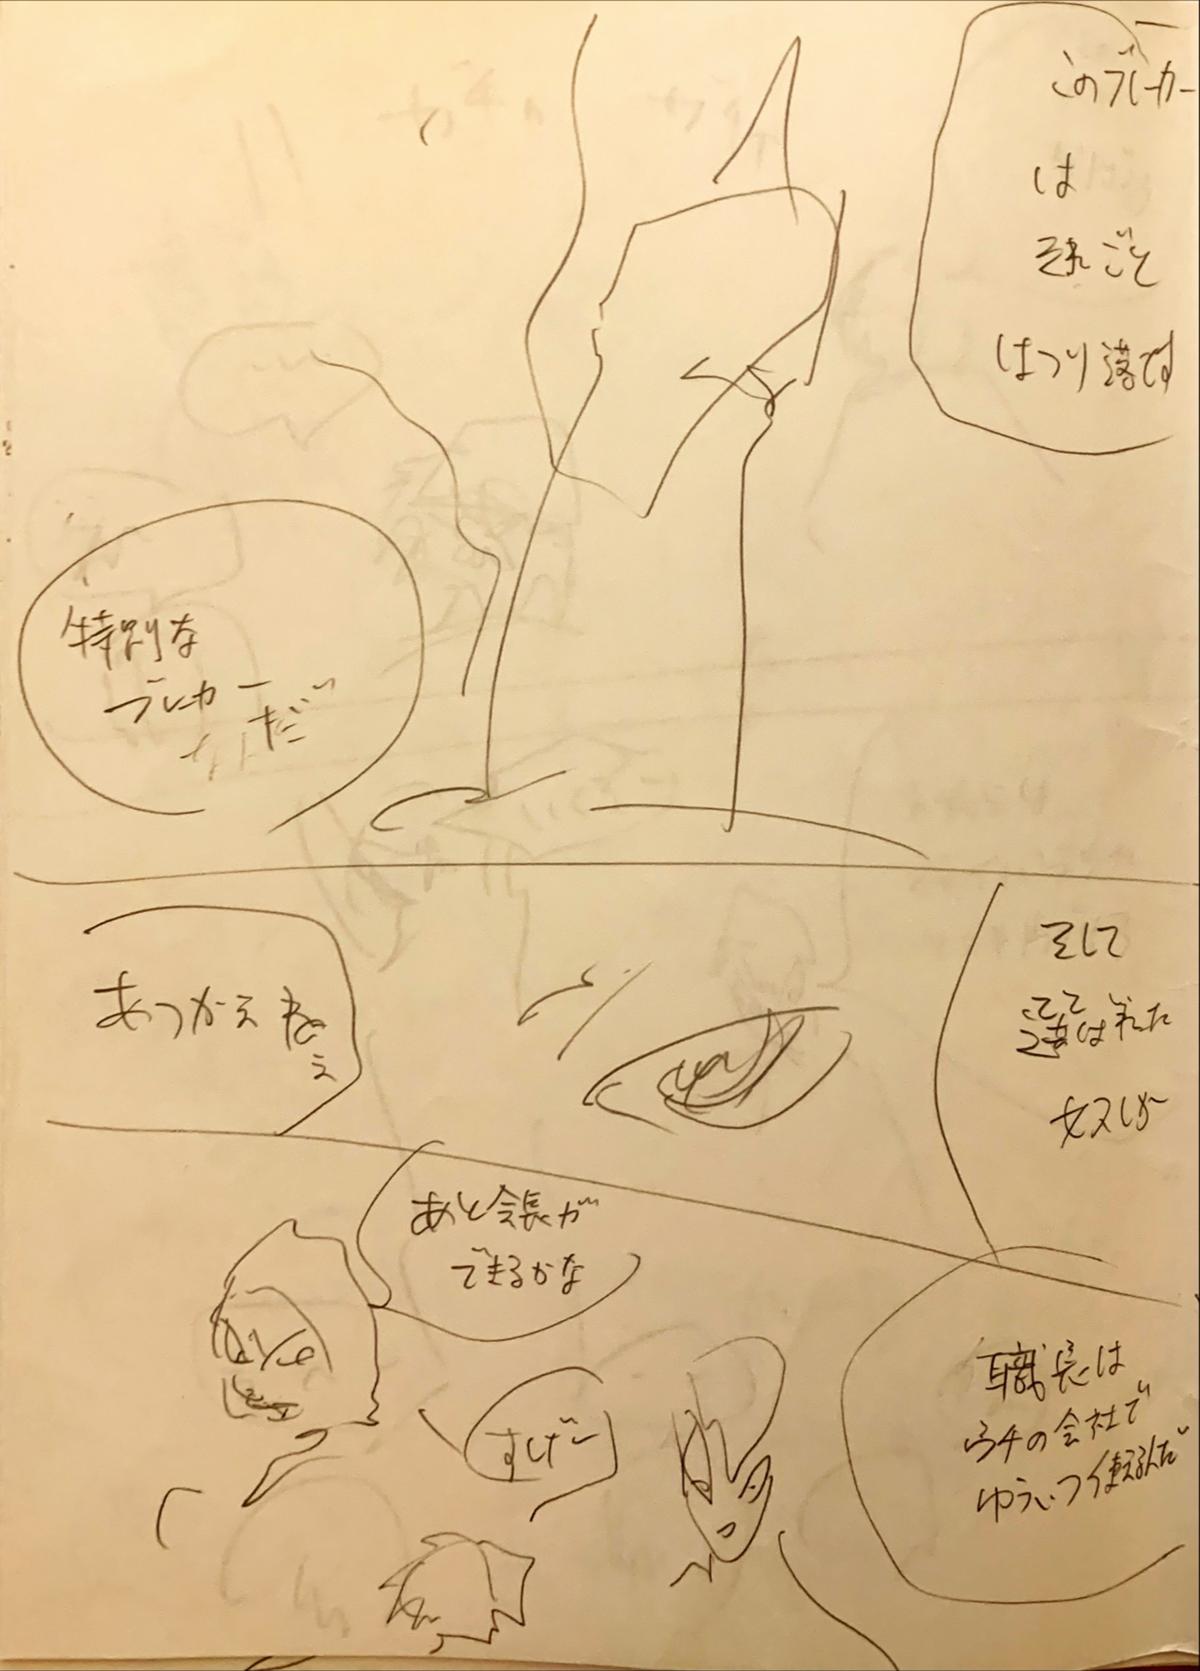 このブレーカー
は
それごと
はつり落す
特別な
ブレーカー
なんだ
そして
選ばれた
奴しか
あつかえねえ
あと会長が
できるかな
職長は
ウチの会社で
ゆういつ使えるんだ
すげー